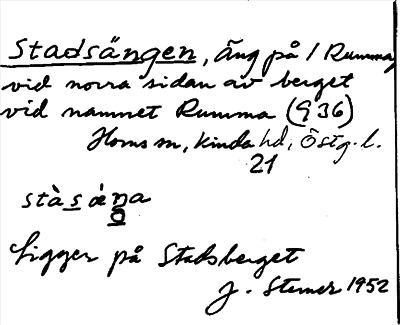 Stadsängen, Äng på 1 Rumma,
vid norra sidan av berget
vid namnet Rumma (936)
Horns sn, Kinda hd, Östg. l.
21
Ligger på Stadsberget
J. Sterner 1952